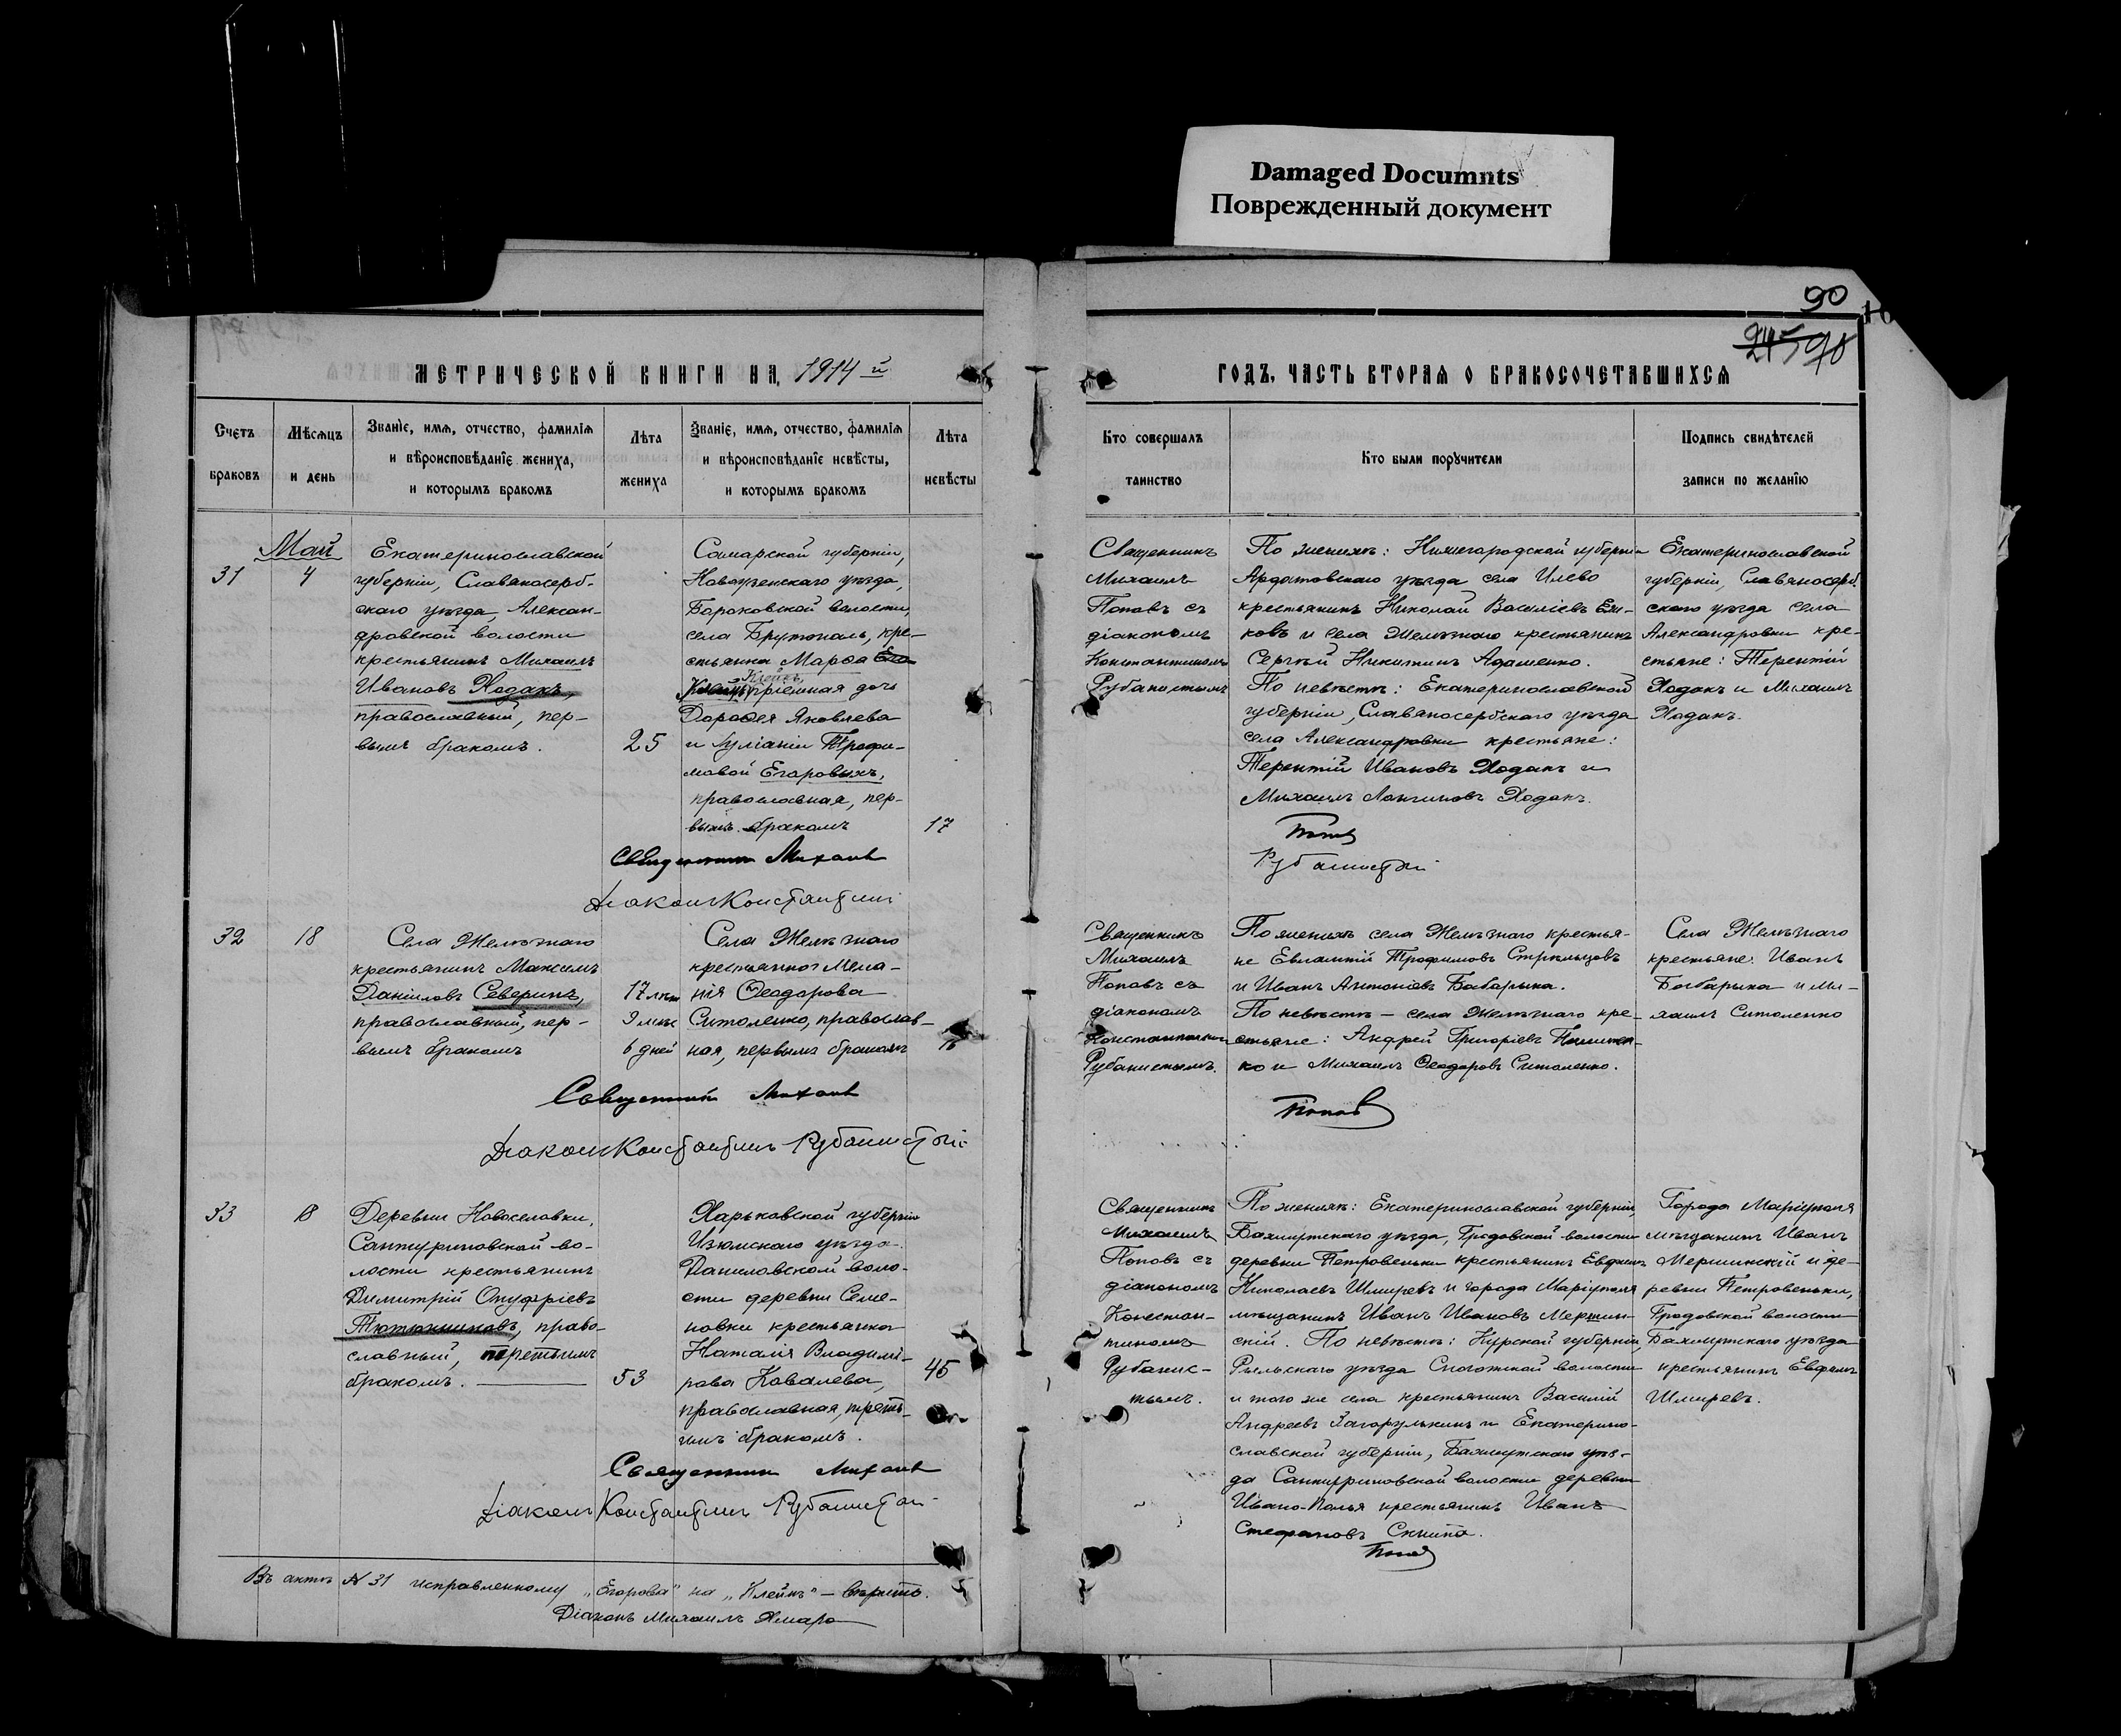 Damaged Documnts
Поврежденный документ
90
МЕТРИЧЕСКОЙ КНИГИ НА 1914 й
ГОДЪ, ЧАСТЬ ВТОРАЯ О БРАКОСОЧЕТАВШИХСЯ
Счетъ браковъ
Мѣсяцъ и день
Званїе, имя, отчество, фамилїя
и вѣроисповѣданїе жениха,
и которымъ бракомъ
Лѣта жениха
Званїе, имя, отчество, фамилїя
и вѣроисповѣданїе невѣсты,
и которымъ бракомъ
Лѣта невѣсты
Кто совершалъ таинство
Кто были поручители
Подпись свидѣтелей
записи по желанїю
Май
31
4
Екатеринославской
губерніи, Славяносерб-
скаго уѣзда, Алексан-
дровской волости
крестьянинъ Михаилъ
Ивановъ Ходакъ,
православный, пер-
вымъ бракомъ.
25
Самарской губерніи,
Новоузенскаго уѣзда,
волости
села кре-
стьянка Марѳа
Клейнъ
пріемная дочь
Дороѳея Яковлева
и Іуліаніи Трофи-
мовой Егоровыхъ,
православная, пер-
вымъ бракомъ
17
Священникъ Михаилъ
Діаконъ Константинъ
Священникъ
Михаилъ
Поповъ съ
діакономъ
Константиномъ
Рубанистымъ
По женихѣ: Нижегородской губерніи
Ардатовскаго уѣзда села Илево
крестьянинъ Николай Василіевъ
и села Желѣзнаго крестьянинъ
Сергѣй Никитинъ Адаменко.
По невѣстѣ: Екатеринославской
губерніи, Славяносербскаго уѣзда
села Александровки крестьяне:
Терентій Ивановъ Ходакъ и
Михаилъ Лонгиновъ Ходакъ.
Поповъ
Рубанистый
Екатеринославской
губерніи, Славяносерб-
скаго уѣзда села
Александровки кре-
стьяне: Терентій
Ходакъ и Михаилъ
Ходакъ.
32
18
Села Желѣзнаго
крестьянинъ Максимъ
Даніиловъ Северинъ,
православный, пер-
вымъ бракомъ
17 лѣтъ
9 мѣс
6 дней
Села Желѣзнаго
крестьянка Мела-
нія Ѳеодорова
Ситоленко, православ-
ная, первымъ бракомъ
16
Священникъ Михаилъ
Діаконъ Константинъ Рубанистый
Священникъ
Михаилъ
Поповъ съ
діакономъ
Константиномъ
Рубанистымъ.
По женихѣ села Желѣзнаго крестья-
не Евлампій Трофимовъ Стрѣльцовъ
и Иванъ Антоніевъ Бабарыка.
По невѣстѣ – села Желѣзнаго кре-
стьяне: Андрей Григоріевъ
ко и Михаилъ Ѳеодоровъ Ситоленко.
Поповъ
Села Желѣзнаго
крестьяне: Иванъ
Бабарыка и Ми-
хаилъ Ситоленко
33
18
Деревни Новоселовки,
Сантуриновской во-
лости крестьянинъ
Димитрій Онуфріевъ
Тютюнниковъ, право-
славный, третьимъ
бракомъ.
53
Харьковской губерніи
Изюмскаго уѣзда
Даниловской воло-
сти деревни Семе-
новки крестьянка
Наталія Владимі-
рова Ковалева,
православная, треть-
имъ бракомъ.
45
Священникъ Михаилъ
Діаконъ Константинъ Рубанистый
Священникъ
Михаилъ
Поповъ съ
діакономъ
Констан-
тиномъ
Рубанис-
тымъ.
По женихѣ: Екатеринославской губерніи,
Бахмутскаго уѣзда, Гродовской волости
деревни Петровеньки крестьянинъ Евфимъ
Николаевъ Шмыревъ и города Маріуполя
мѣщанинъ Иванъ Ивановъ Мершин-
скій. По невѣстѣ: Курской губерніи,
Рыльскаго уѣзда волости
и того же села крестьянинъ Василій
Андреевъ Загорулькинъ и Екатерино-
славской губерніи, Бахмутскаго уѣз-
да Сантуриновской волости деревни
Ивано-Полья крестьянинъ Иванъ
Стефановъ Скнипа.
Поповъ
Города Маріуполя
мѣщанинъ Иванъ
Мершинскій и де-
ревни Петровеньки,
Гродовской волости
Бахмутскаго уѣзда
крестьянинъ Евфимъ
Шмыревъ.
Въ актѣ № 31 исправленному „Егорова" на „Клейнъ" – вѣрить.
Діаконъ Михаилъ Хмара